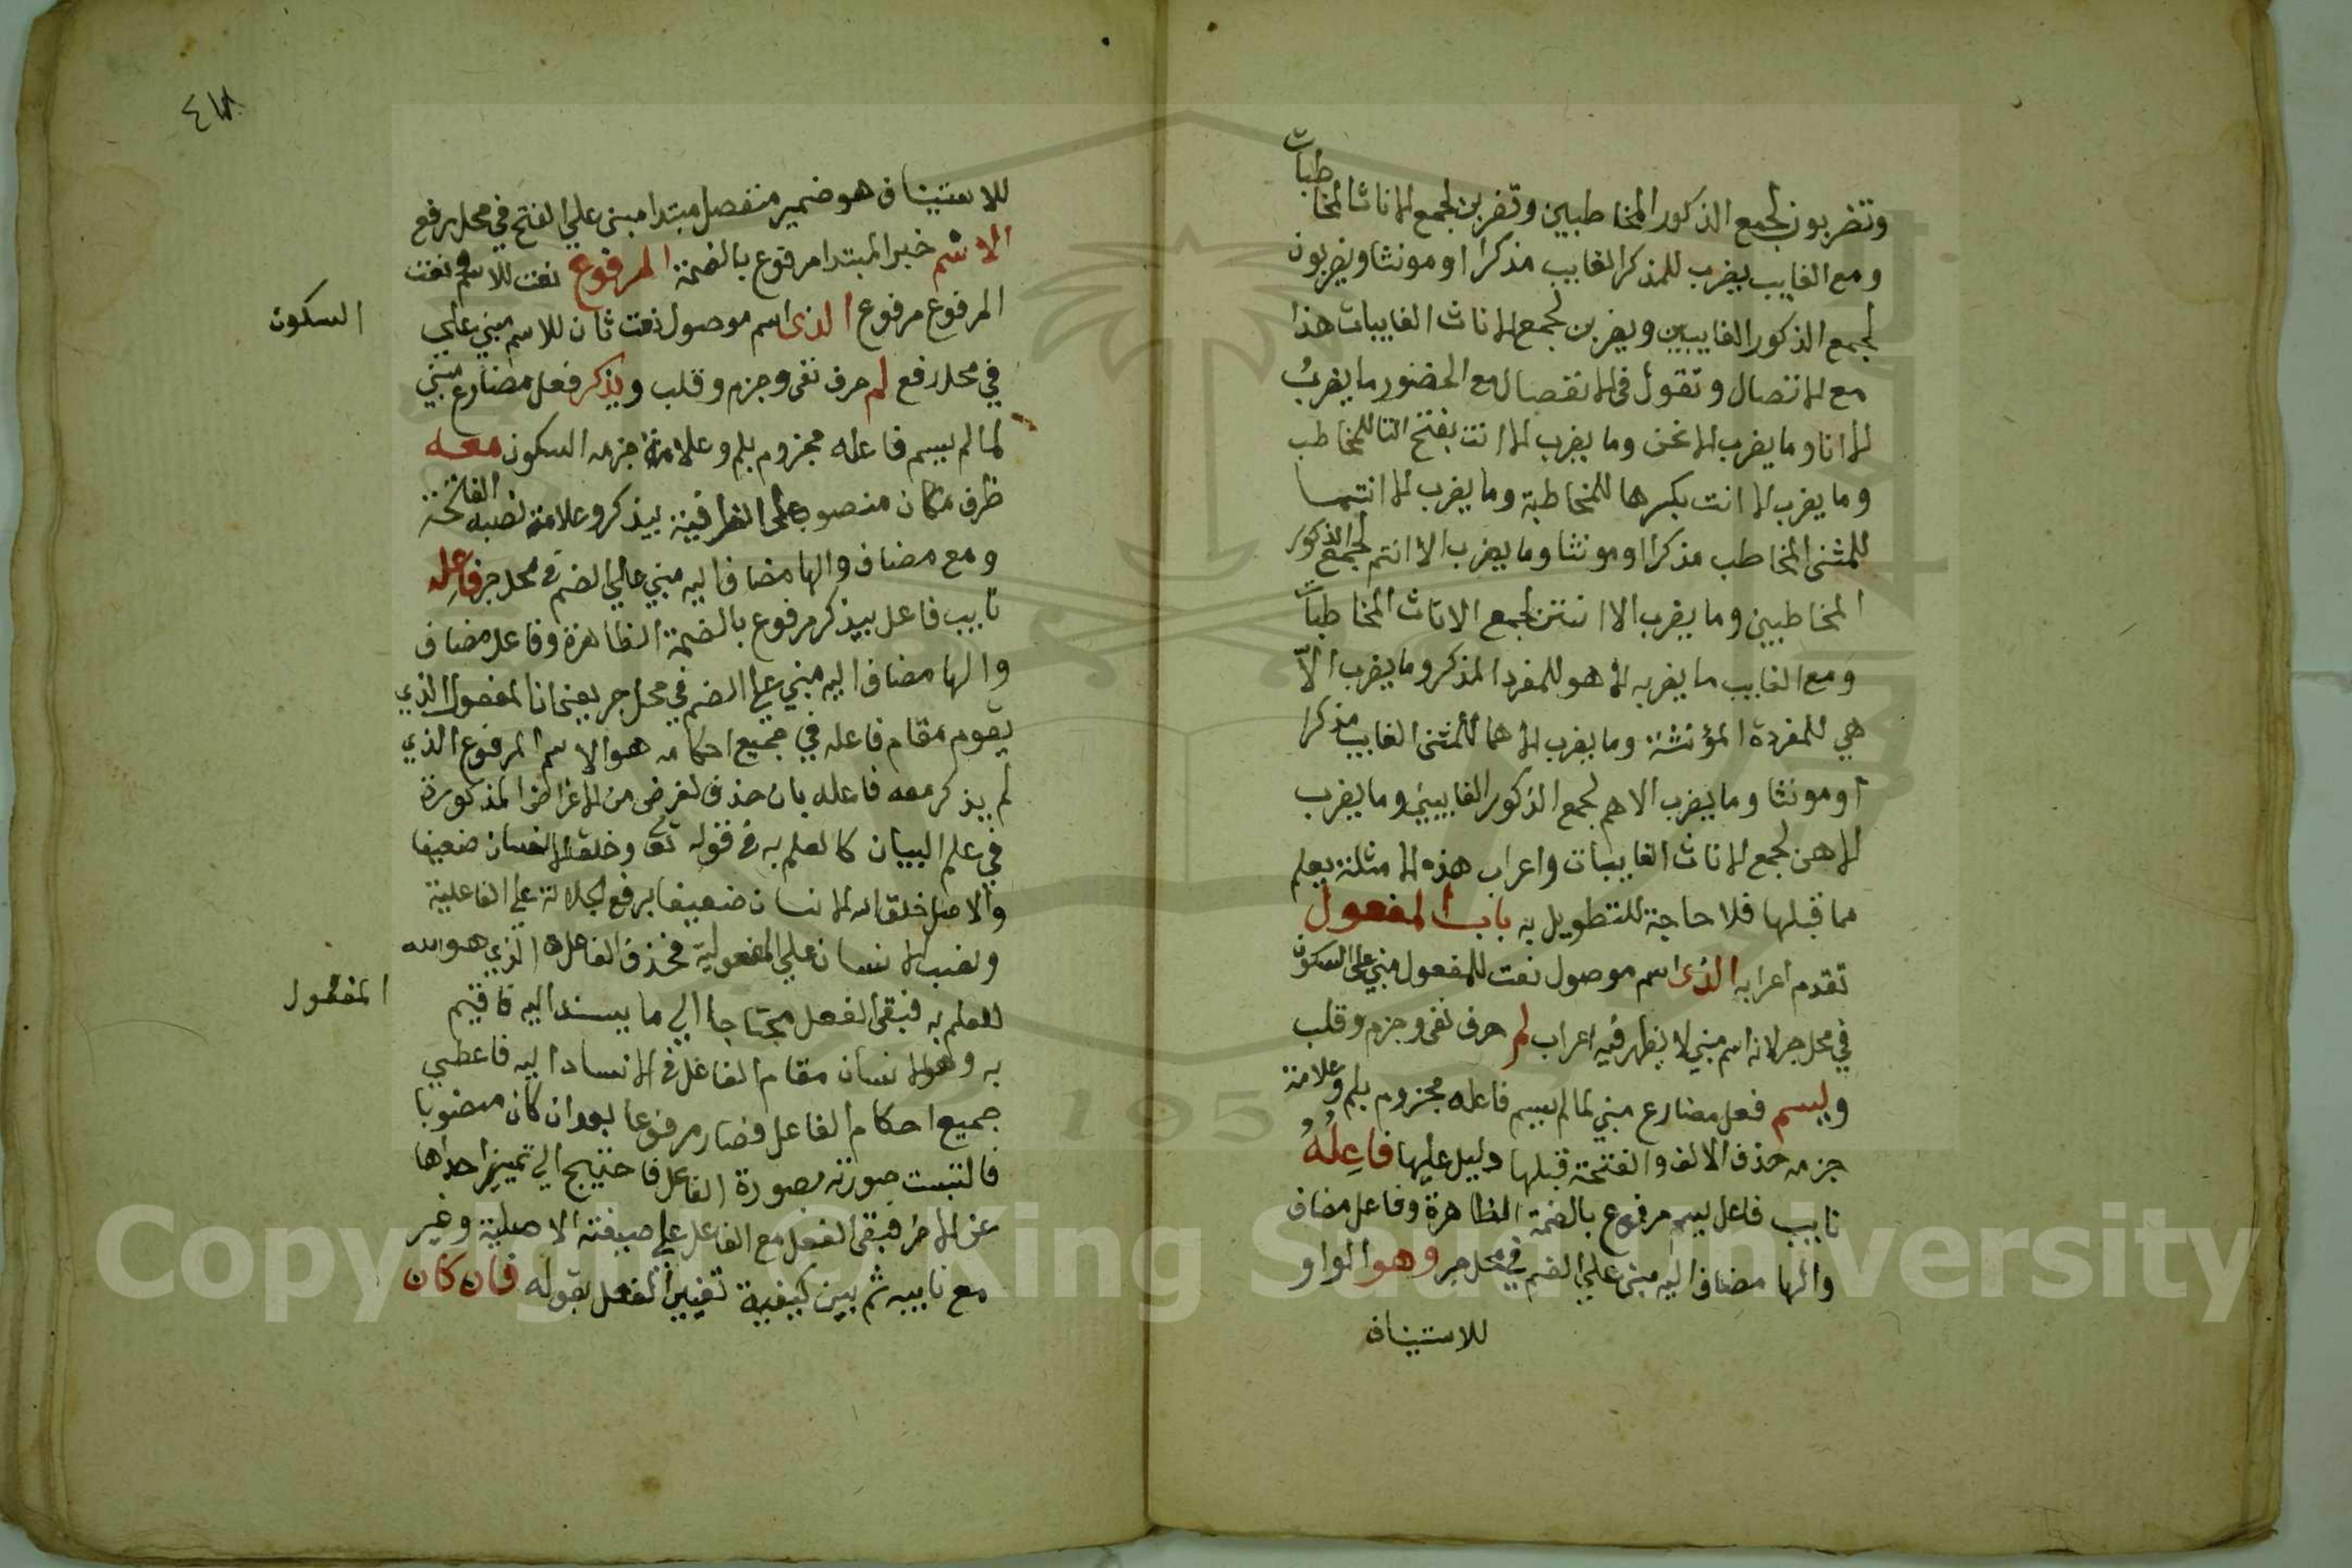 وتضربون لجمع الذكور المخاطبين وتضربن لجمع الاناث المخاطبات
ومع الغايب يضرب للمذكر الغايب مذكرا او مونثا ويضربون
لجمع الذكور الغايبين ويضربن لجمع الاناث الغايبات هذا
مع الاتصال وتقول في الانفصال مع الحضور ما يضربُ
الا انا وما يضرب الا نحن وما يضرب الا انت بفتح التا للمخاطب
وما يضرب الا انت بكسرها للمخاطبة وما يضرب الا انتما
للمثنى المخاطب مذكرا او مونثا وما يضرب الا انتم لجمع الذكور
المخاطبين وما يضرب الا انتن لجمع الاناث المخاطبات
ومع الغايب ما يضربه الا هو للمفرد المذكر وما يضرب الّا
هي للمفردة المؤنثة وما يضرب الا هما للمثنى الغايب مذكرا
او مونثا وما يضرب الا هم لجمع الذكور الغايبين وما يضرب
الا هن لجمع الاناث الغايبات واعراب هذه الامثلة يعلم
مما قبلها فلا حاجة للتطويل به باب المفعول
تقدم اعرابه الذى اسم موصول نعت للمفعول مبني على السكون
في محل جر لانه اسم مبني لا يظهر فيه اعراب لم حرف نفى وجزم وقلب
ويسم فعل مضارع مبني لما لم يسم فاعله مجزوم بلم وعلامة
جزمه حذف الالف والفتحة قبلها دليل عليها فاعِلُهُ
نايب فاعل يسم مرفوع بالضمة الظاهرة وفاعل مضاف
والها مضاف اليه مبني علي الضم في محل جر وهو الواو
للاستيناف
٤٨
للاستيناف هو ضمير منفصل مبتدا مبنى علي الفتح في محل رفع
الاسم خبر المبتدا مرفوع بالضمة المرفوع نعت للاسم ونعت
المرفوع مرفوع الذى اسم موصول نعت ثان للاسم مبني علي
السكون
في محل رفع لم حرف نفى وجزم وقلب ويذكر فعل مضارع مبني
لما لم يسم فاعله مجزوم بلم وعلامة جزمه السكون معه
ظرف مكان منصوب على الظرفية بيذكر وعلامة نصبه الفتحة
ومع مضاف والها مضاف اليه مبني علي الضم في محل جر فاعِله
نايب فاعل بيذكر مرفوع بالضمة الظاهرة وفاعل مضاف
والها مضاف اليه مبني علي الضم في محل جر يعني ان المفعول الذي
يقوم مقام فاعله في جميع احكامه هو الاسم المرفوع الذي
لم يذكر معه فاعله بان حذف لغرض من الاغراض المذكورة
في علم البيان كالعلم به في قوله تعا وخلق الانسان ضعيفا
والاصل خلق الله الانسان ضعيفا برفع الجلالة علي الفاعلية
ونصب الانسان علي المفعولية فحذف الفاعل الذي هو الله
للعلم به فبقى الفعل محتاجا الي ما يسند اليه فاقيم
المفعول
به وهو الانسان مقام الفاعل في الاسناد اليه فاعطي
جميع احكام الفاعل فصار مرفوعا بعد ان كان منصوبا
فالتبست صورته بصورة الفاعل فاحتيج الي تمييز احداهما
عن الاخر فبقى الفعل مع الفاعل علي صيغته الاصلية وغير
مع نايبه ثم بين كيفية تغيير الفعل بقوله فان كان
Copyright © King Saud University
195